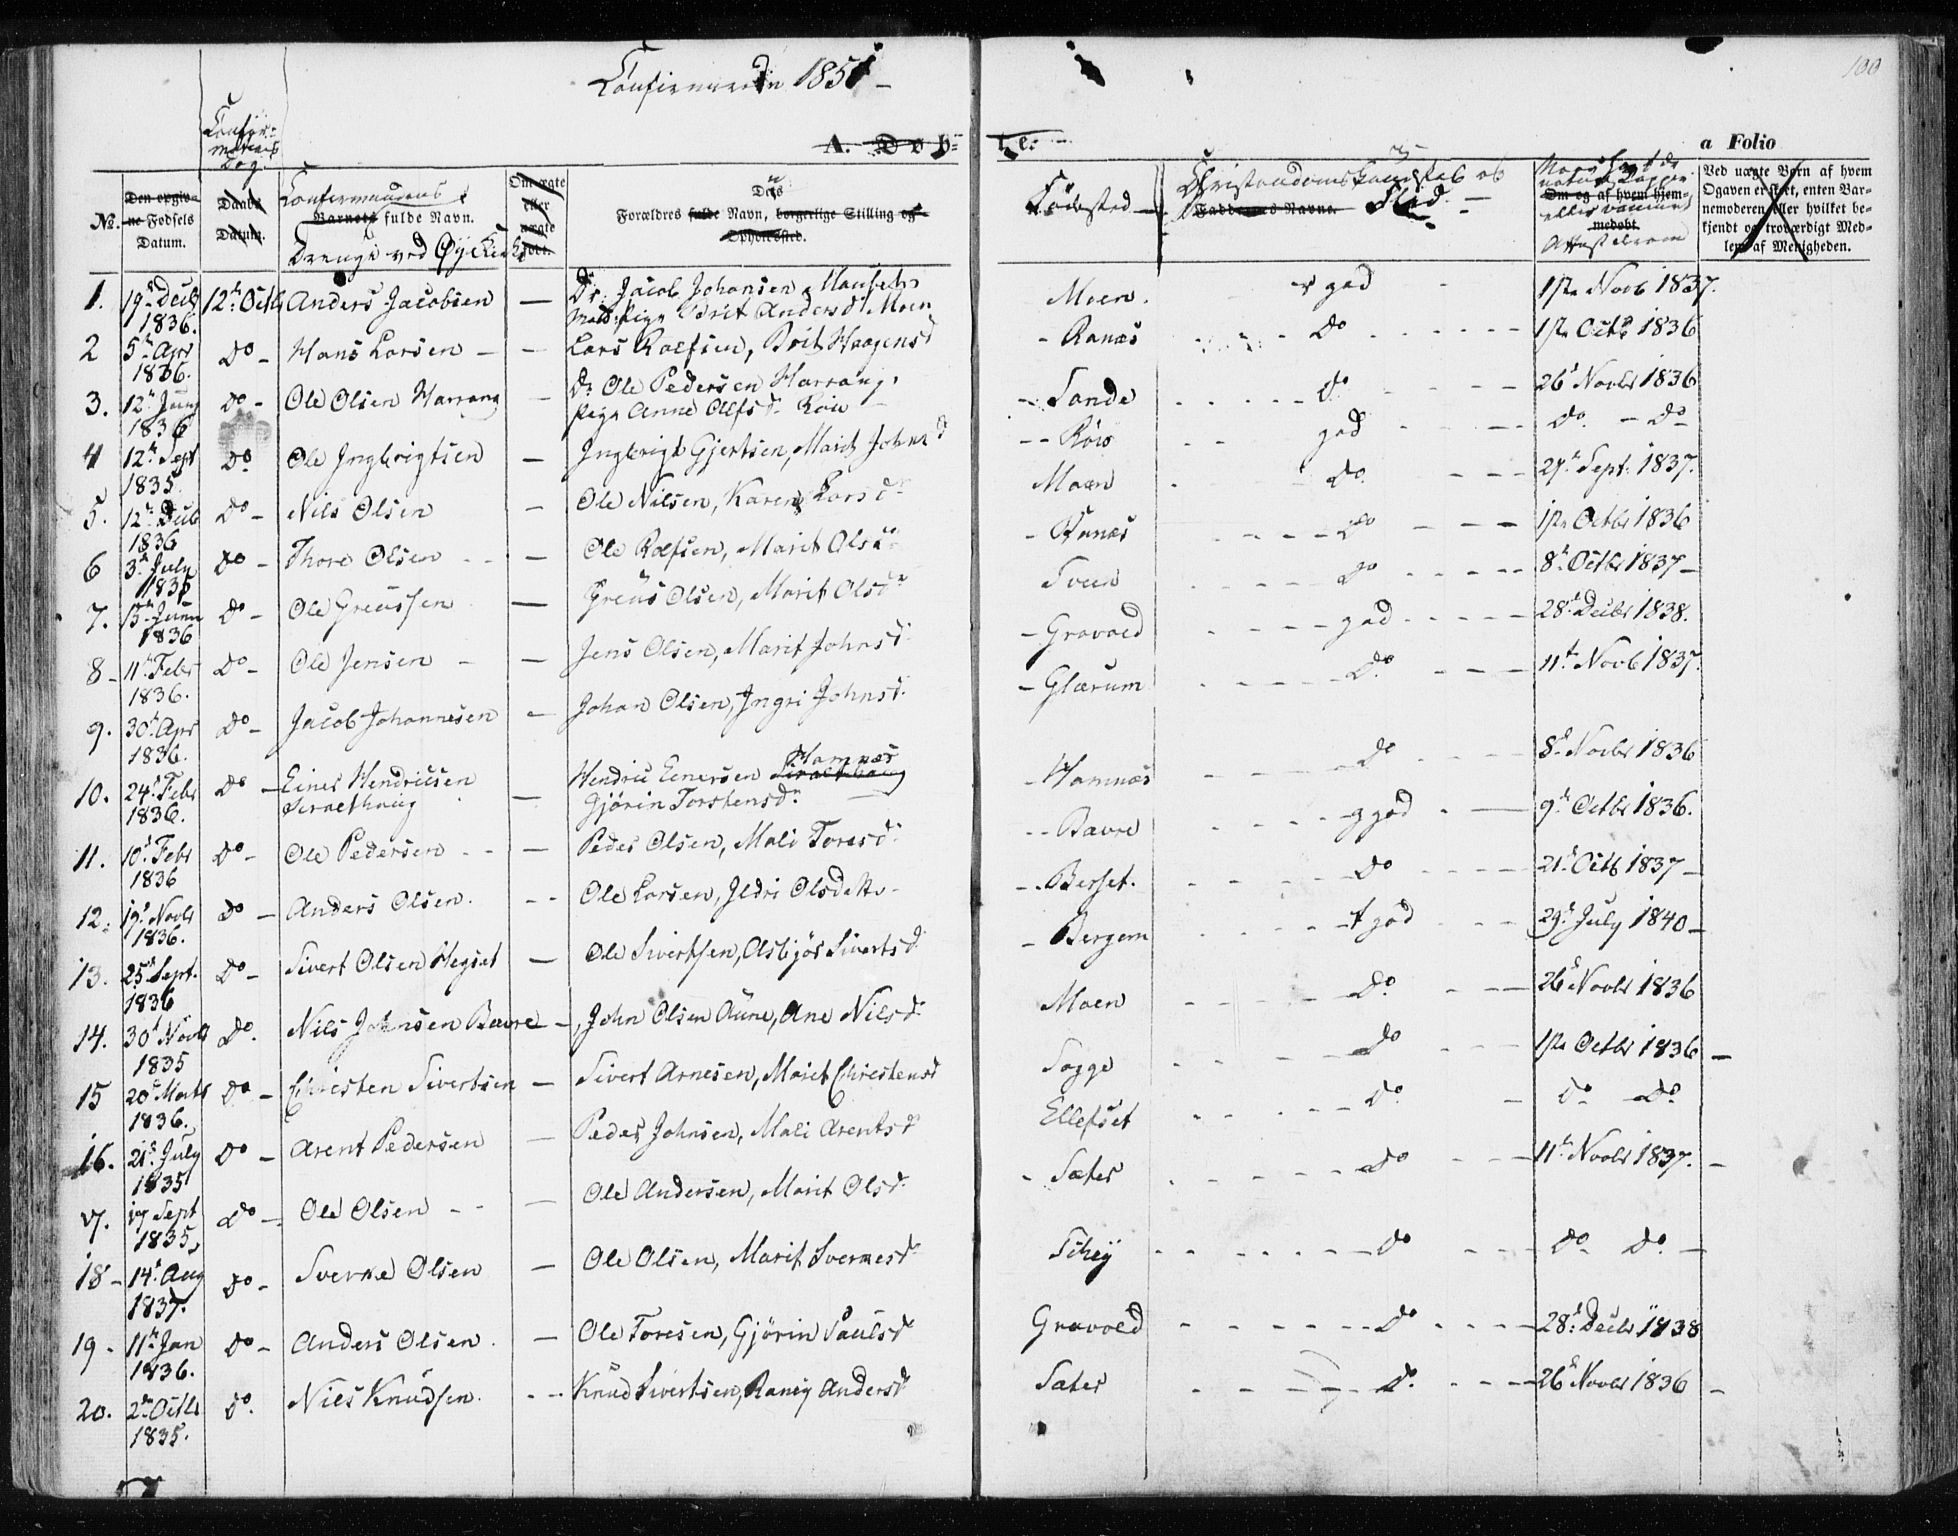 Confirmerede 1851 -
100
Confir-
mations
Dag.
A. Døb-
te.
a Folio
№.
Den orgin-
ne Fødsels
Datum.
Daabs
Datum.
Confirmandens
Barnets fulde Navn.
Drenge ved Øye Kirke
Om ægte
eller
uægte
født.
Dets
Forældres fulde Navn, borgerlige Stilling og
Opholdssted.
Födested
Christendoms Kundskab og
Faddernes Navne. Flid. -
Om og af hvem hjem-
medøbt.
Ved uægte Børn af hvem
Ogaven er skeet, enten Bar-
nemoderen eller hvilket be-
kjendt og troværdigt Med-
lem af Menigheden.
1. 19 Decbr 1836. 12te Octb Anders Jacobsen — Jacob Johansen
Pige Brit Andersd Moen Moen. god 1ste Novb 1837.
2 5te Apr 1836. Do - Hans Larsen - - Lars Rolfsen, Brit Haagensd - Ranæs Do 1ste Octb 1836
3. 12te Juny 1836 Do - Ole Olsen Harrang - Ole Pedersen Harrang,
Pige Anne Olfsd. Röie - Sande Do 26 Novbr 1836
4 12te Sept 1835 Do Ole Ingbrigtsen — Ingbrigt Gjertsen, Marit Johnsd - - Röio god do. - do
5. 12te 1836 Do - Nils Olsen — Ole Nilsen, Karen Larsd Moen Do 24 Sept. 1837.
6 3 July 1835 Do - Thore Olsen - - — Ole Rolfsen, Marit Olsd - Ranæs Do 1ste Octbr 1836
7. 13 1836 Do - Ole Greussen — Greus Olsen, Marit Olsd Sveen Do 8 Octbr 1837 -
8 - 11 Febr 1836. Do - Ole Jensen - — Jens Olsen, Marit Johnsd - Gravold god 28 Decbr 1838.
9. 30 Apr 1836. Do - Jacob Johannesen - Johan Olsen, Ingri Johnsd. - Glærum Do. 11te Novb 1837.
10. 24 Febr 1836. Do - Einer Hendricsen
— Hendric Einersen Hamnæs
Gjörin Torstensd. - Hamnæs Do 8 Novbr 1836
11. 10 Febr 1836 Do - Ole Pedersen - - — Peder Olsen, Mali Toresd. - - Bævre god 9 Octbr 1836.
12. 19 Novbr 1836. Do - Anders Olsen. - - Ole Larsen, Ildri Olsdatter - - - Berset. Do 21 Octb 1837 -
13. 25 Sept. 1836 Do - Sivert Olsen Hegset — Ole Sivertsen, Asbjör Sivertsd. - Bergem god 29 July 1840 -
14. 30 Novbr 1835 Do. Nils Johnsen Bævre - John Olsen Aune, Ane Nilsd. Moen Do. 26 Novbr 1836
15 20 Marts 1836. Do - Christen Sivertsen — Sivert Arnesen, Marit Christensd Sogge Do 1ste Octbr 1836 -
16. 21 July 1835 Do - Arent Pedersen — Peder Johnsen, Mali Arentsd Ellefset Do. Do Do.
17. 17 Sept 1835, Do - Ole Olsen - - — Ole Andersen, Marit Olsd. - Sæter Do 11 Novbr 1837. -
18 - 14 Aug 1837. Do - Sverke Olsen — Ole Olsen, Marit Sverkesd Schey Do Do. Do. -
19 - 11te Jan 1836. Do - Anders Olsen. — Ole Toresen, Gjörin Paulsd. Gravold Do 28 Decbr 1838
20. 2 Octbr 1835. Do. Nils Knudsen. - - Knud Sivertsen, Raneig Andersd Sæter Do. 26 Novbr 1836 -